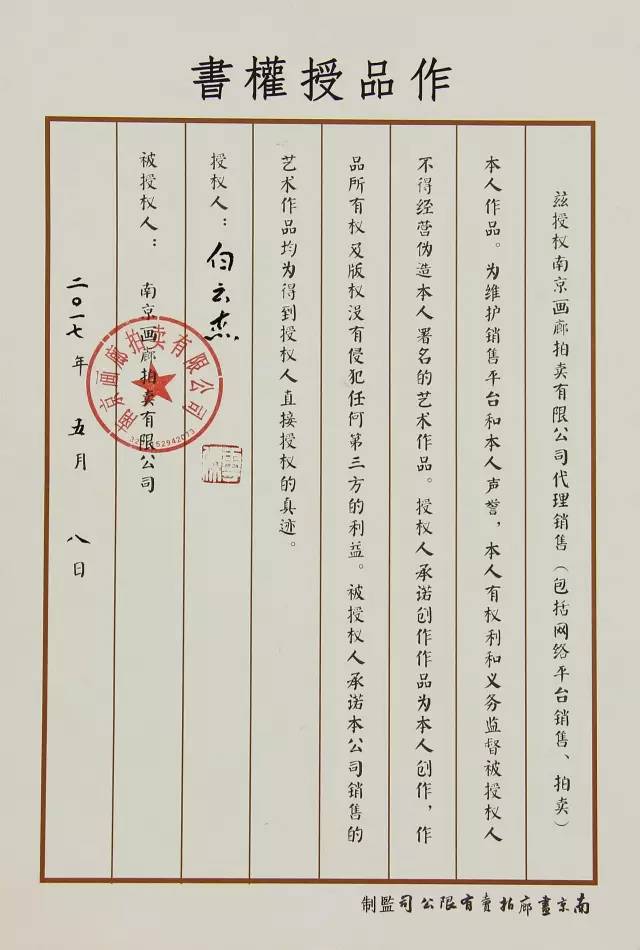 作品授權書
兹授权南京画廊拍卖有限公司代理销售（包括网络平台销售、拍卖）
本人作品。为维护销售平台和本人声誉，本人有权利和义务监督被授权人
不得经营伪造本人署名的艺术作品。授权人承诺创作作品为本人创作，作
品所有权及版权没有侵犯任何第三方的利益。被授权人承诺本公司销售的
艺术作品均为得到授权人直接授权的真迹。
授权人：白云杰
被授权人：南京画廊拍卖有限公司
二〇一七年 五月 八日
南京画廊拍卖有限公司
南京畫廊拍賣有限公司監制